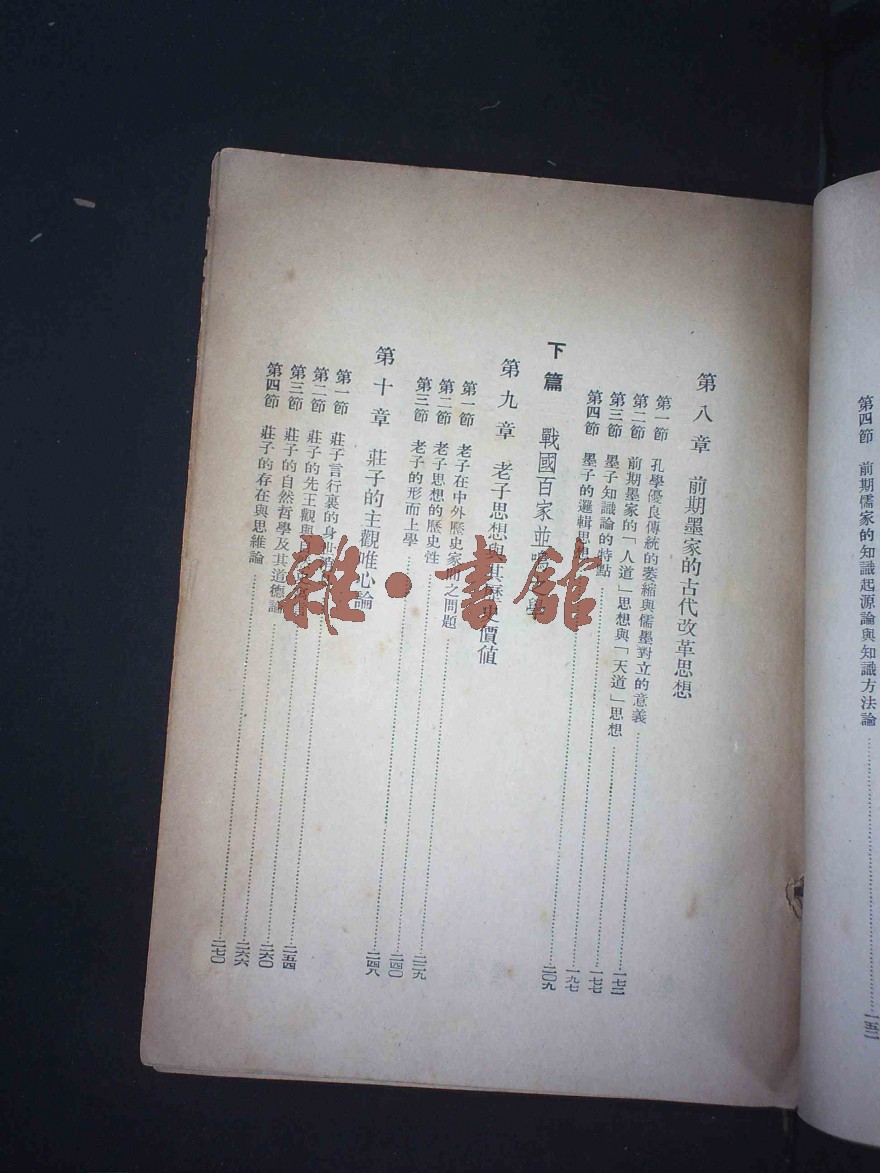 第四節 前期儒家的知識起源論與知識方法論……一五二
第八章 前期墨家的古代改革思想
第一節 孔學優良傳統的萎縮與儒墨對立的意義……一七二
第二節 前期墨家的「人道」思想與「天道」思想……一七七
第三節 墨子知識論的特點……一九七
第四節 墨子的邏輯思想……二〇九
下篇 戰國百家並鳴之學
第九章 老子思想與其歷史價值
第一節 老子在中外歷史家間之問題……二二九
第二節 老子思想的歷史性……二四〇
第三節 老子的形而上學……二四八
第十章 莊子的主觀唯心論
第一節 莊子言行裏的身世……二五四
第二節 莊子的先王觀與……二六〇
第三節 莊子的自然哲學及其道德論……二六六
第四節 莊子的存在與思維論……二七〇
雜·書館